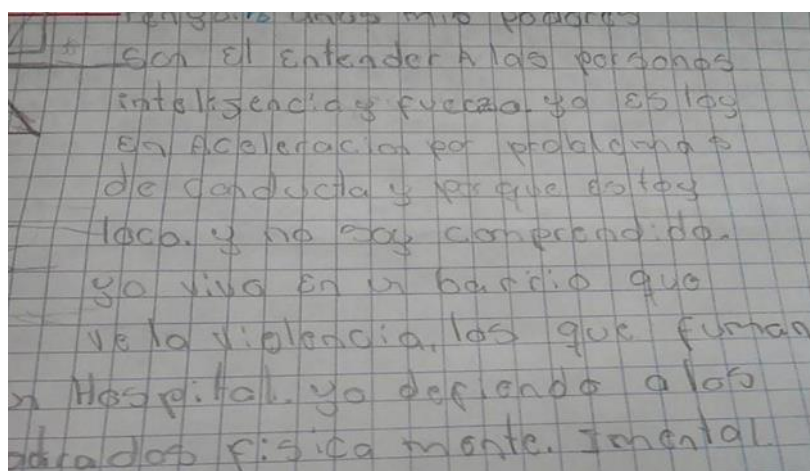 unos mis poderes
son El Entender A las personas
inteligencia y fuerza. yo Estoy
En Aceleracion por problemas
de conducta y por que estoy
loco. y no soy comprendido.
yo vivo En un barrio que
ve la violencia. los que fuman
Hospital. yo defiendo a los
fisica mente. I mental